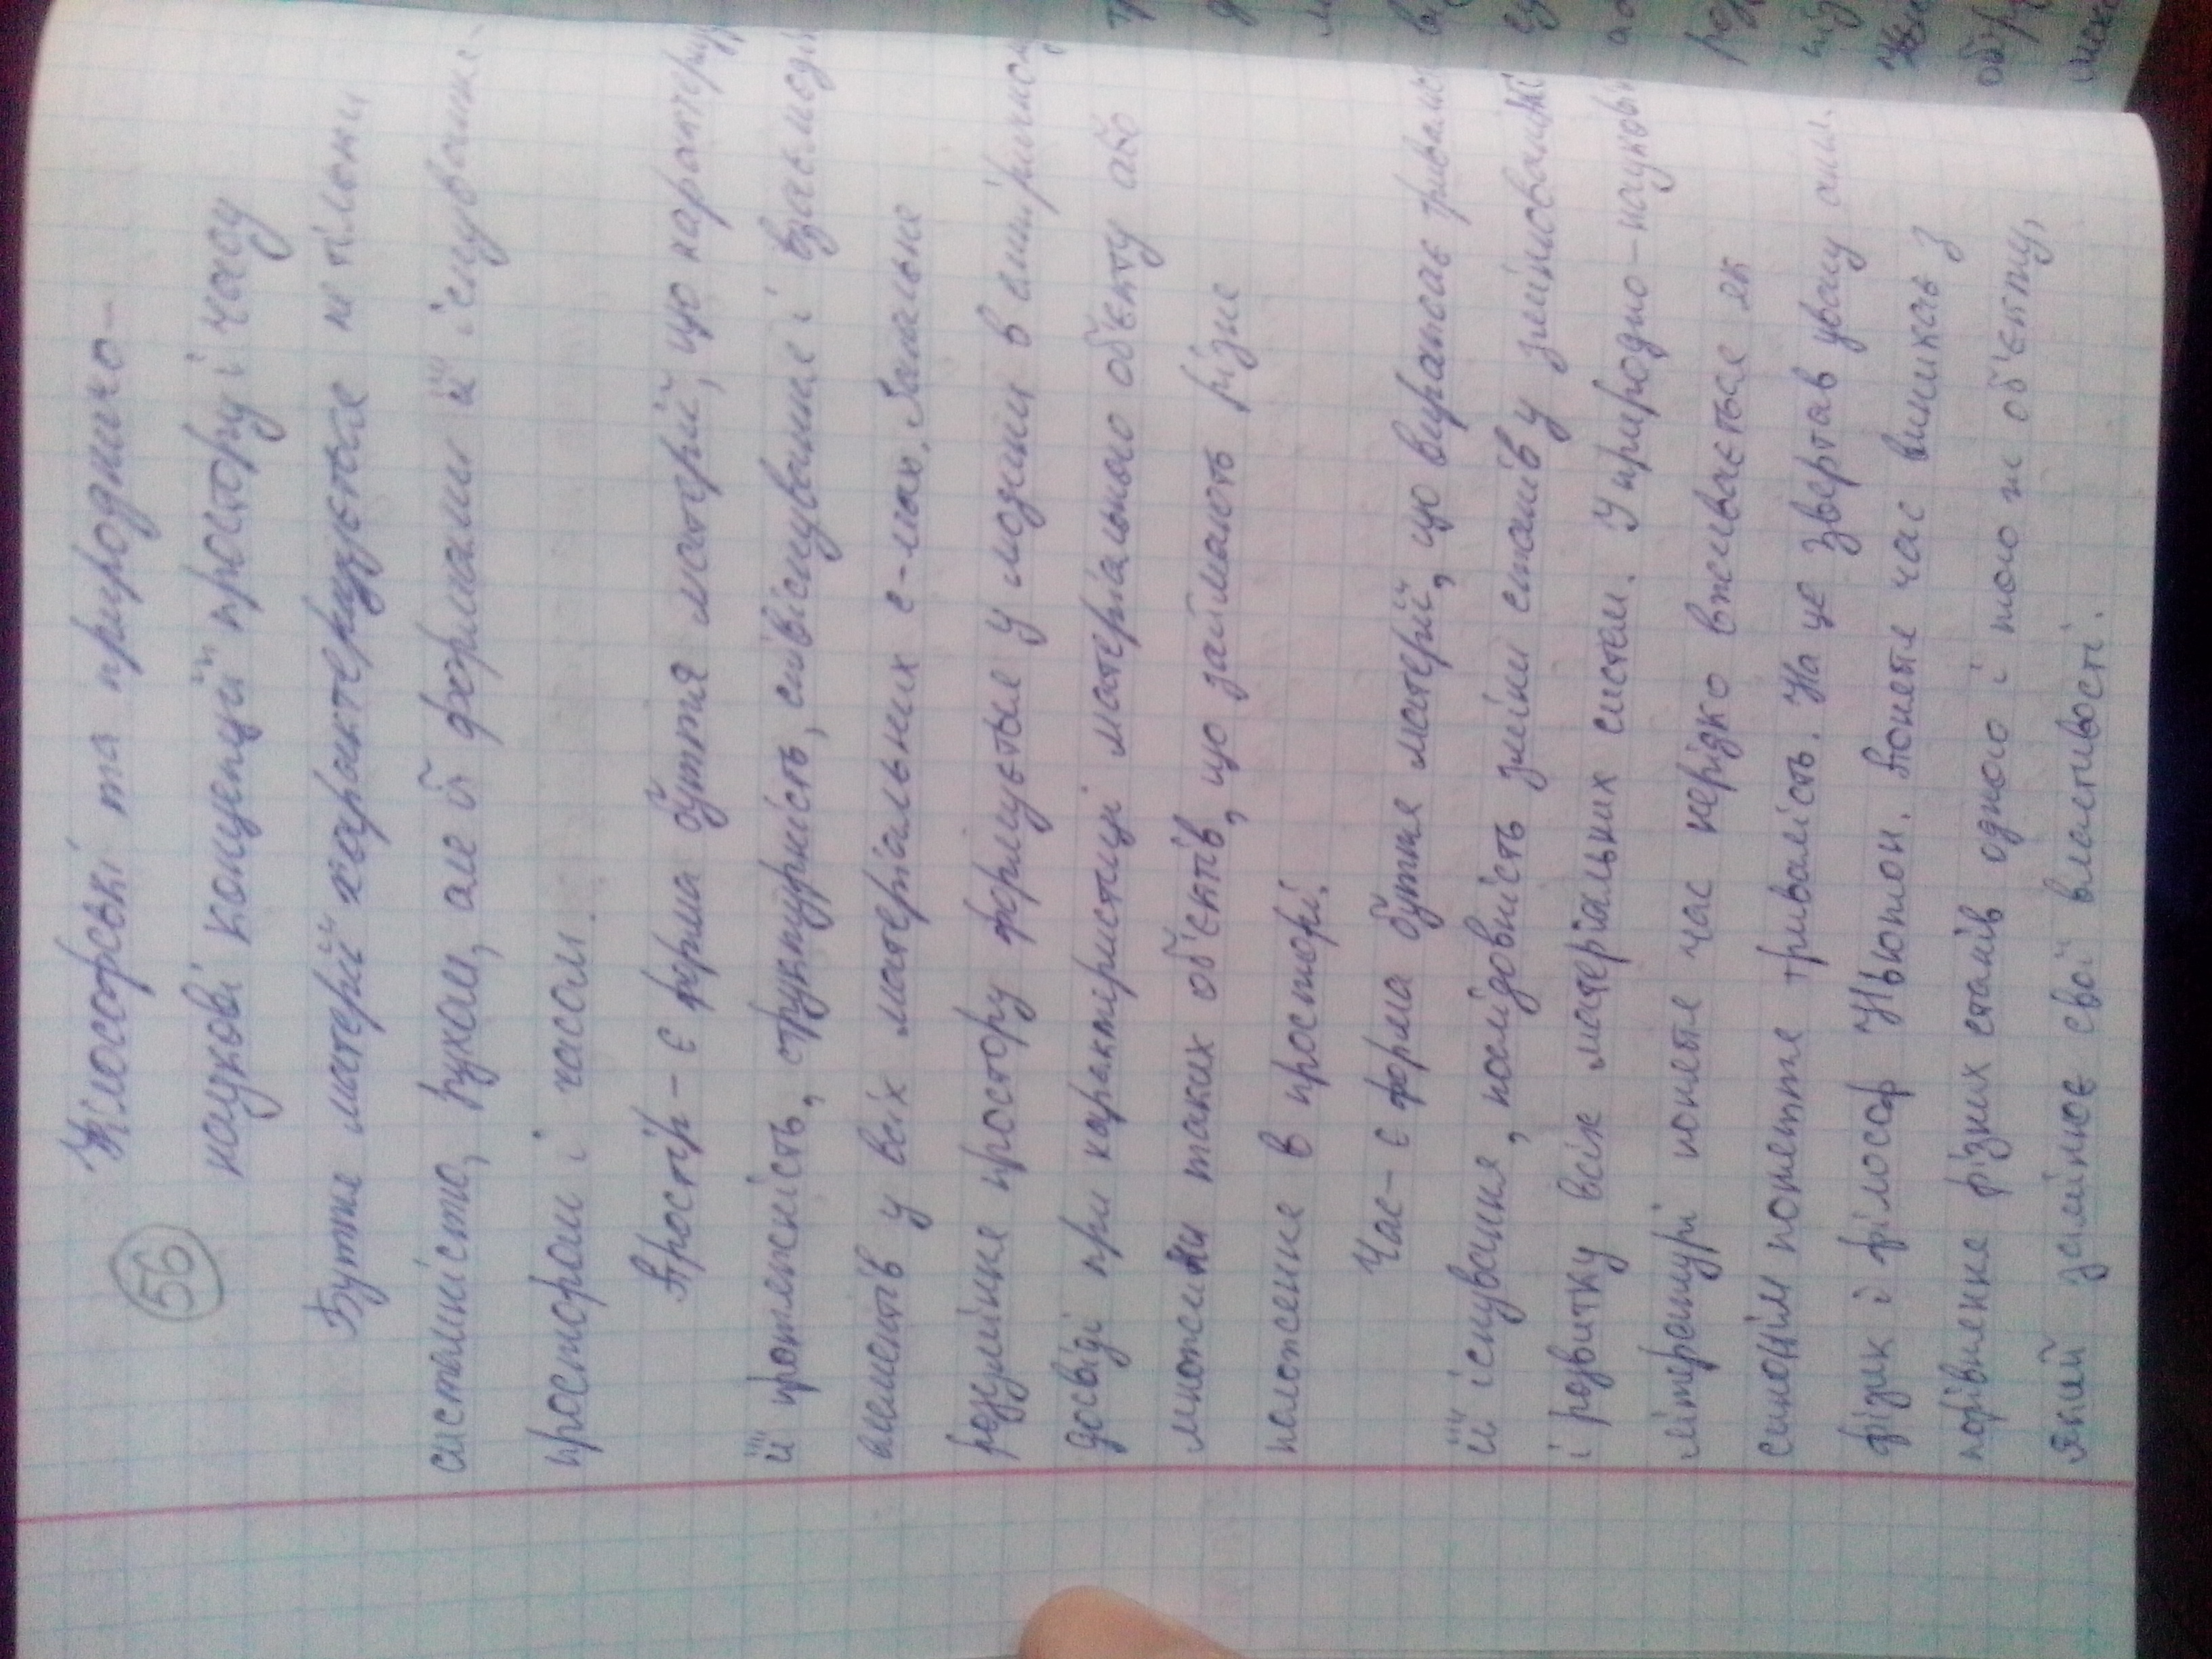 Філософські та природничо-
56
наукові концепції простору і часу
Буття матерії характеризується не тільки
системністю, рухом, але й формами її існування-
простором і часом.
Простір - є форма буття матерії, що характеризує
її протяжність, структурність, співіснування і взаємодію
елементів у всіх матеріальних с-мах. Загальне
розуміння простору формується у людини в емпіричному
досвіді при характеристиці матеріального об'єкту або
множини таких об'єктів, що займають різне
положення в просторі.
Час - є форма буття матерії, що виражає тривалість
її існування, послідовність зміни станів у змінюванні
і розвитку всіх матеріальних систем. У природно-науковій
літературі поняття час нерідко вживається як
синонім поняття тривалість. На це звертав увагу англ.
фізик і філософ Ньютон. Поняття час виникає з
порівняння різних станів одного і того ж об'єкту,
який замінює свої властивості.